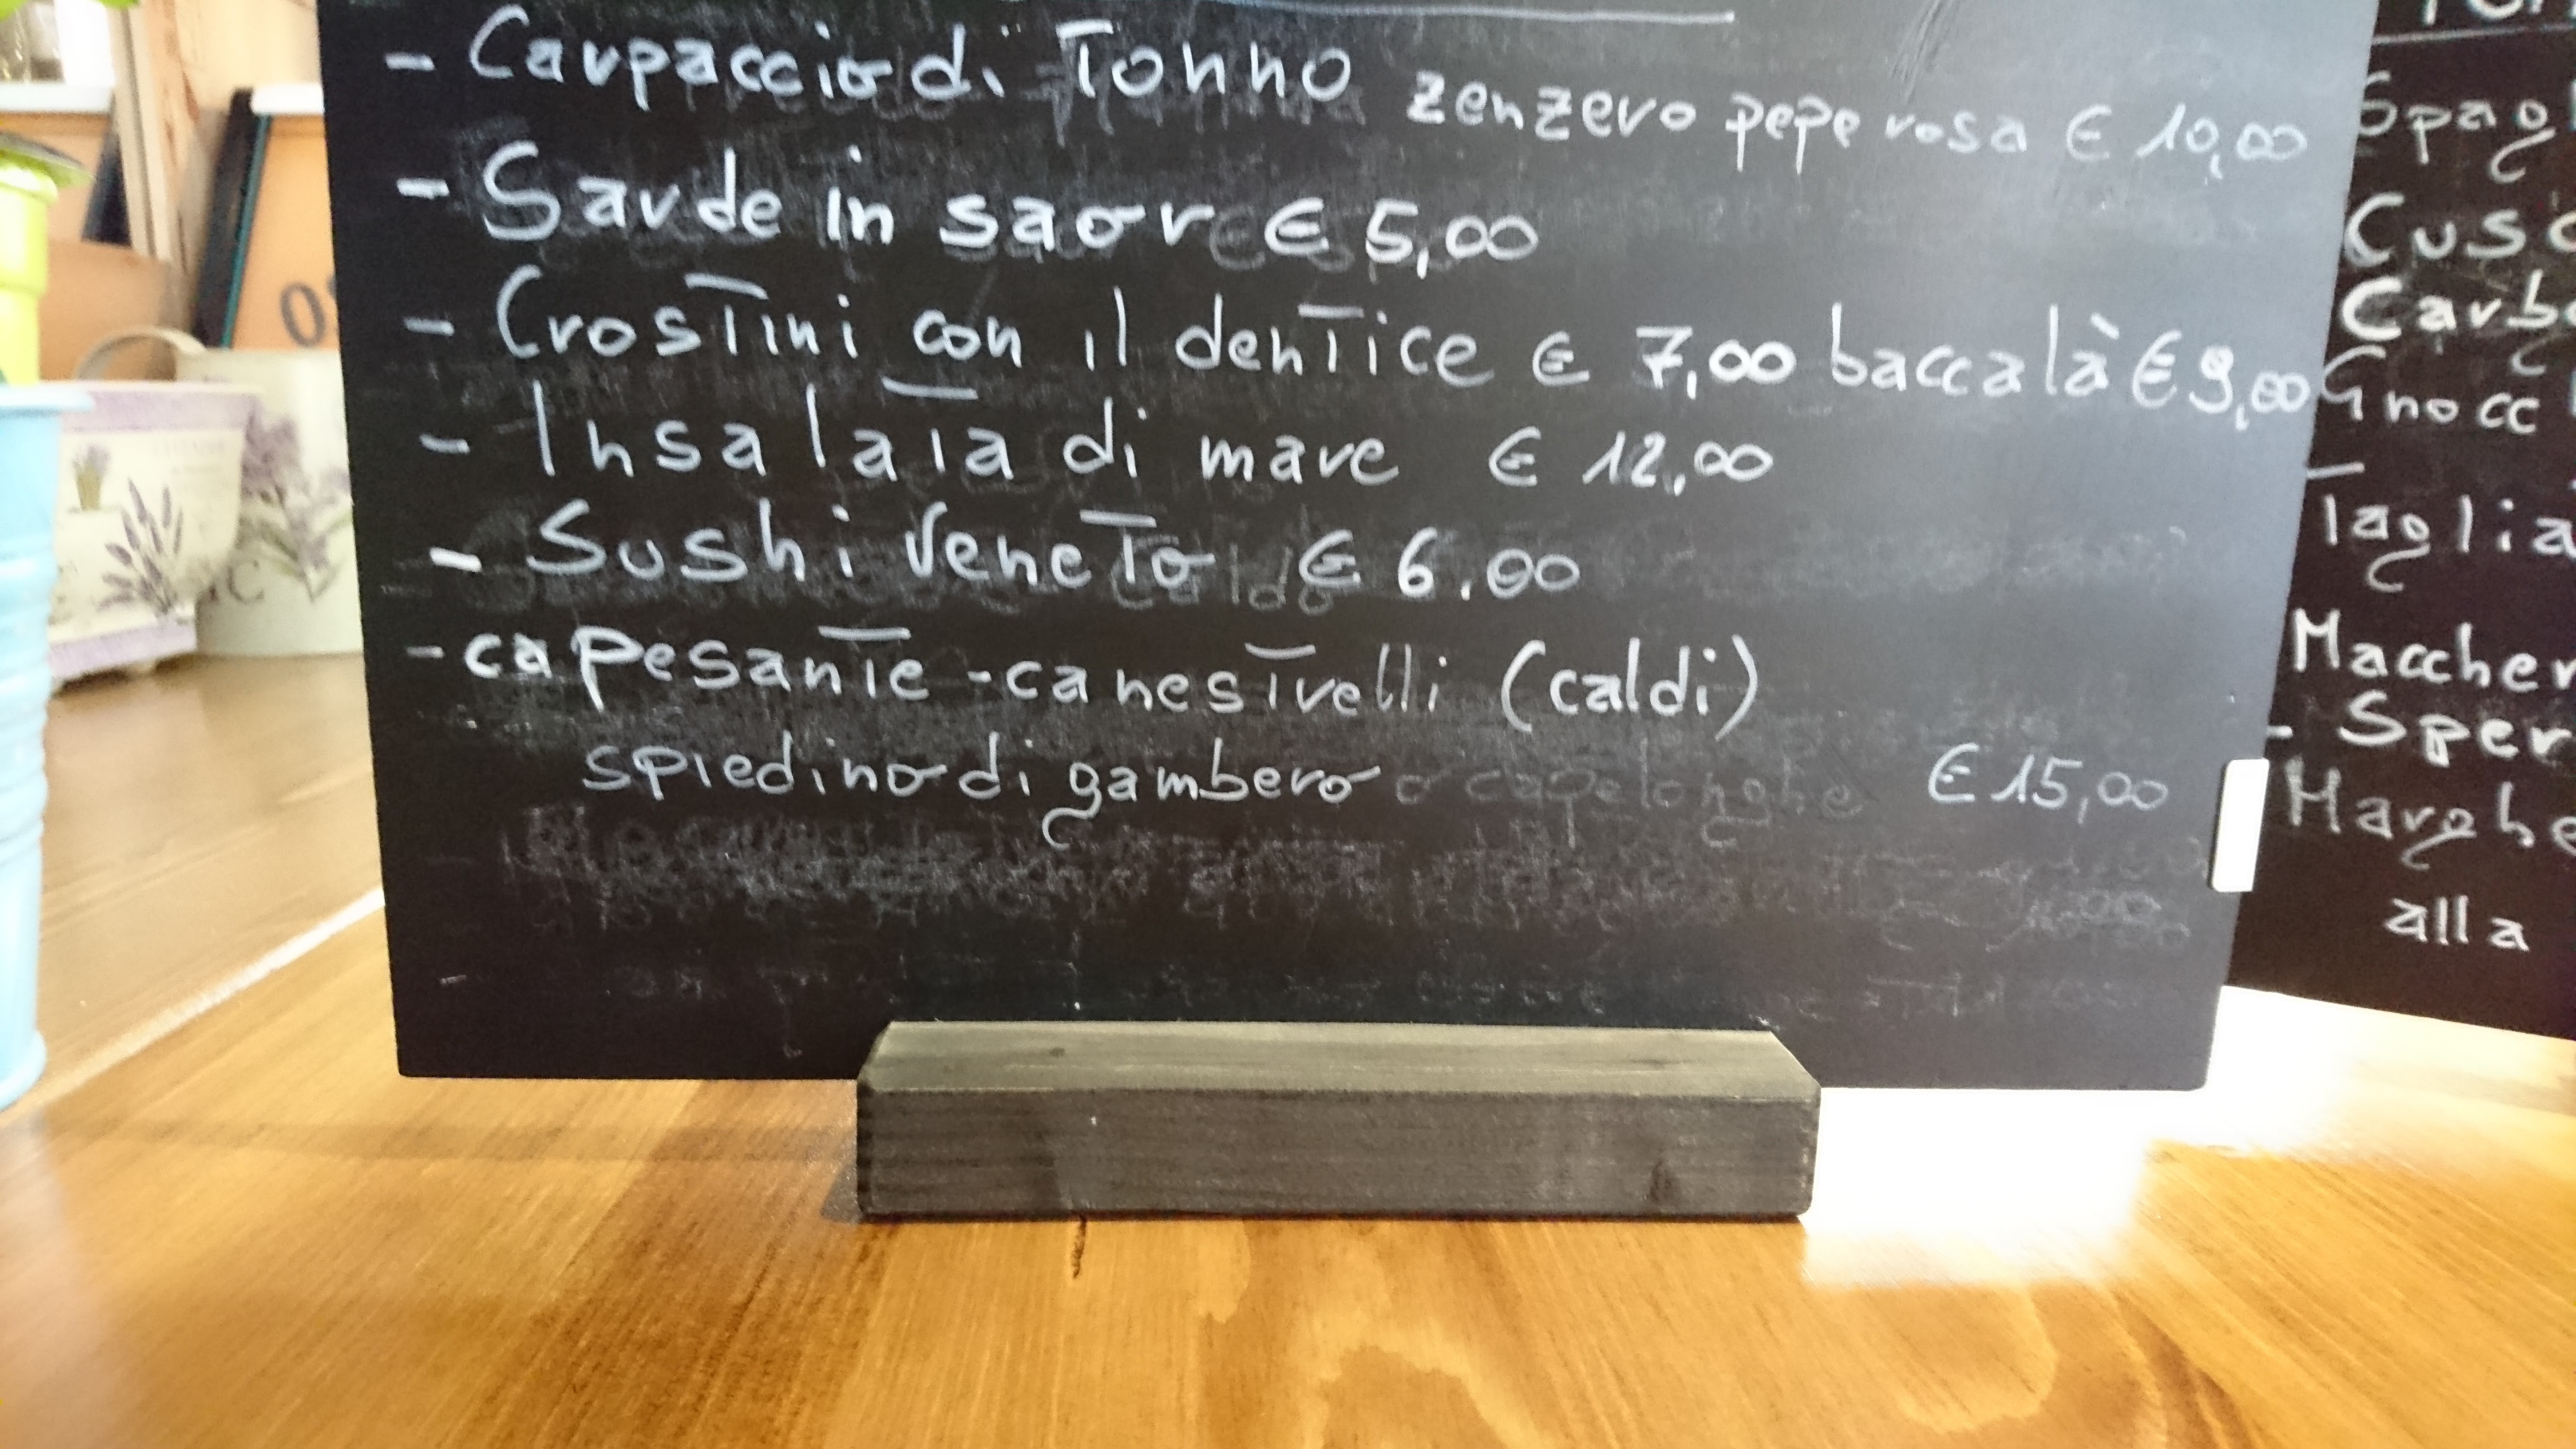 - Carpaccio di Tonno zenzero pepe rosa € 10,00
- Sarde in saor € 5,00
- Crostini con il dentice € 7,00 baccalà € 9,00
- Insalata di mare € 12,00
- Sushi Veneto € 6.00
- capesante - canestrelli (caldi)
spiedino di gambero o capelonghe € 15,00
Spag
Cusc
Carb
Gnocc
Taglia
Maccher
- Sper
Marghe
alla